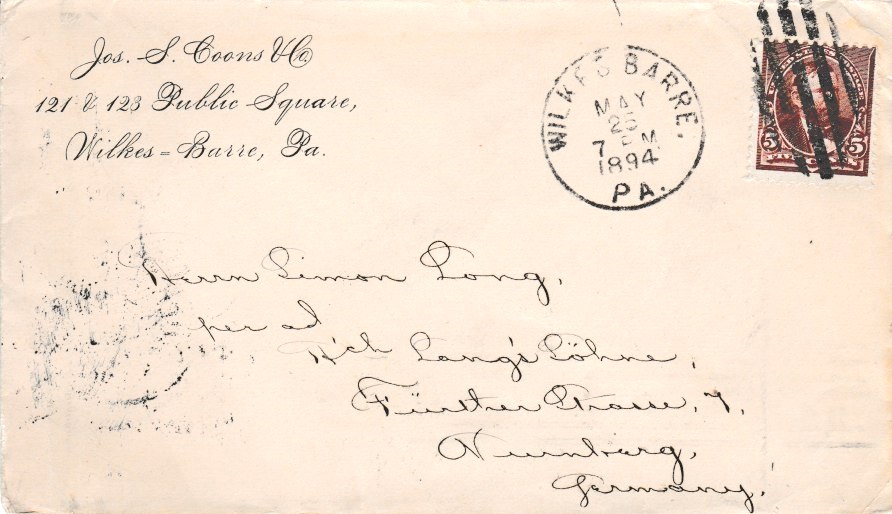 Jos. S. Coons & Co
121 & 123 Public Square,
Wilkes=Barre, Pa.
WILKES BARRE.
MAY
25
7 PM
1894
PA.
5 5
Herrn Simon Long,
per ad
R'ch Lang's Söhne,
Fürther Strasse, 7,
Nurnberg,
Germany.